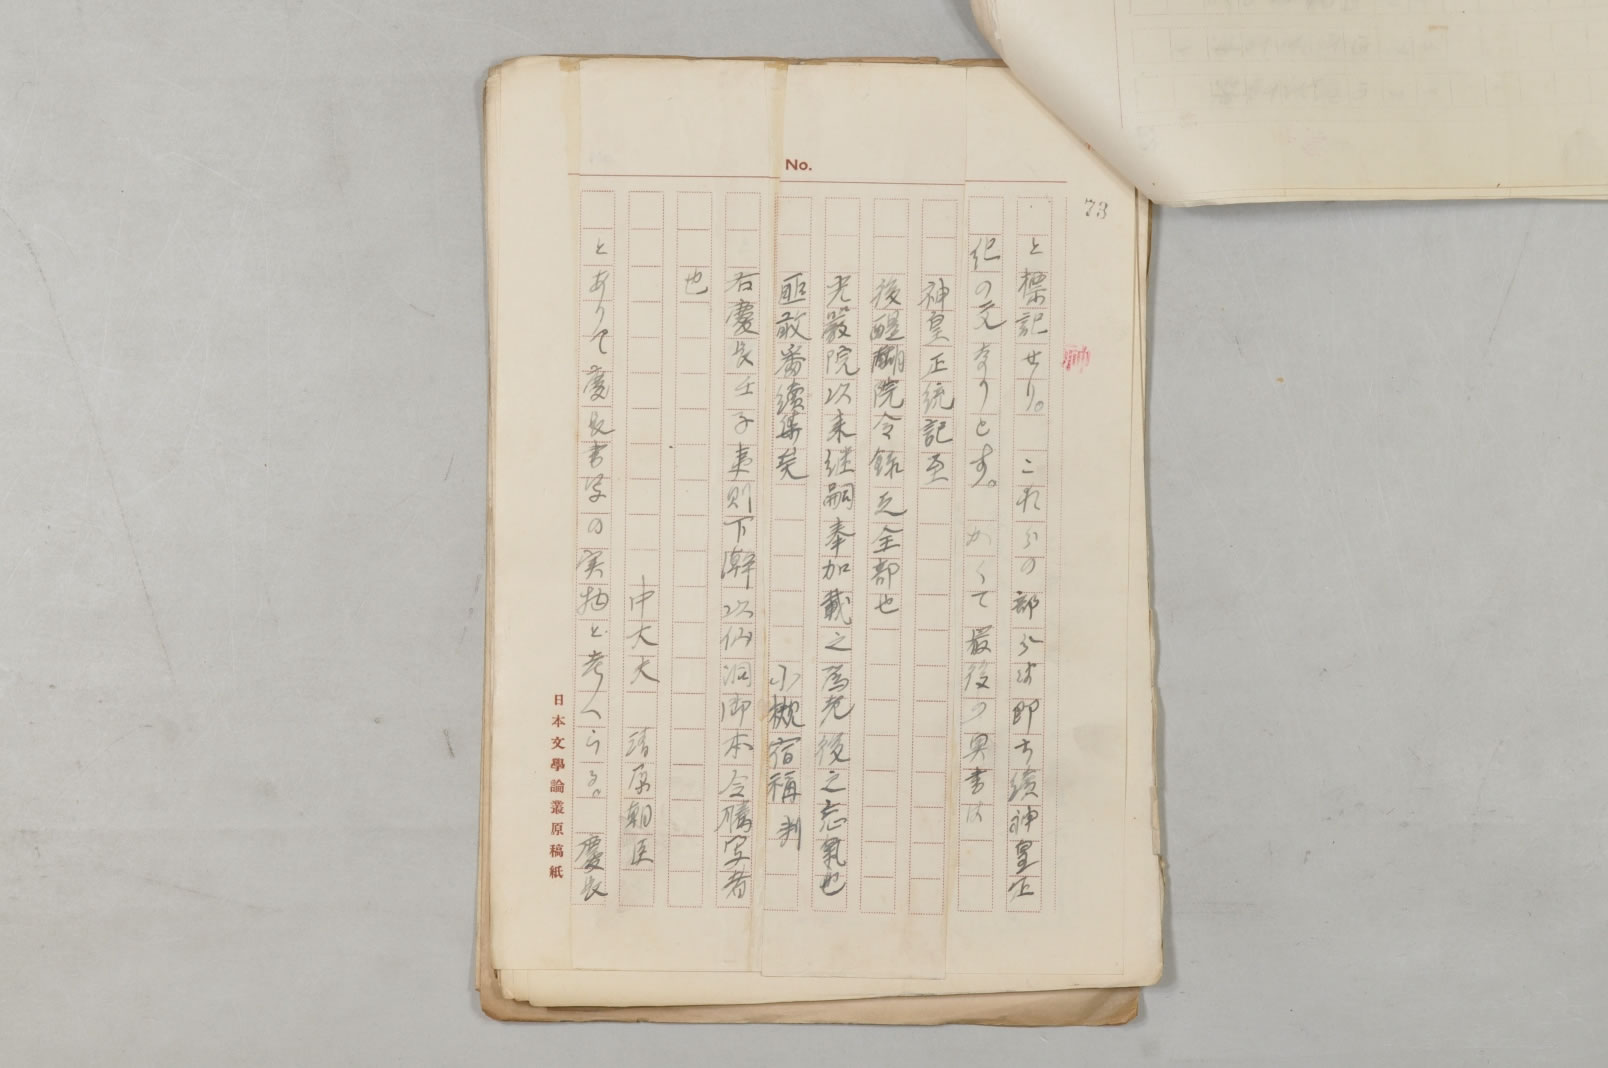 No.
73
と標記せり。これらの部分は即ち續神皇正
紀の文なりとす。かくて最後の奥書は
神皇正統記至
後醍醐院令錄之全部也
光嚴院以来継嗣奉加載之爲老後之忘氣也
敢番續集矣
小槻宿祢判
右慶長壬子夷則下澣以仙洞御本令謄写者
也
中大夫 清原朝臣
とありて慶長書写の実物と考へらる。慶長
日本文學論叢原稿紙